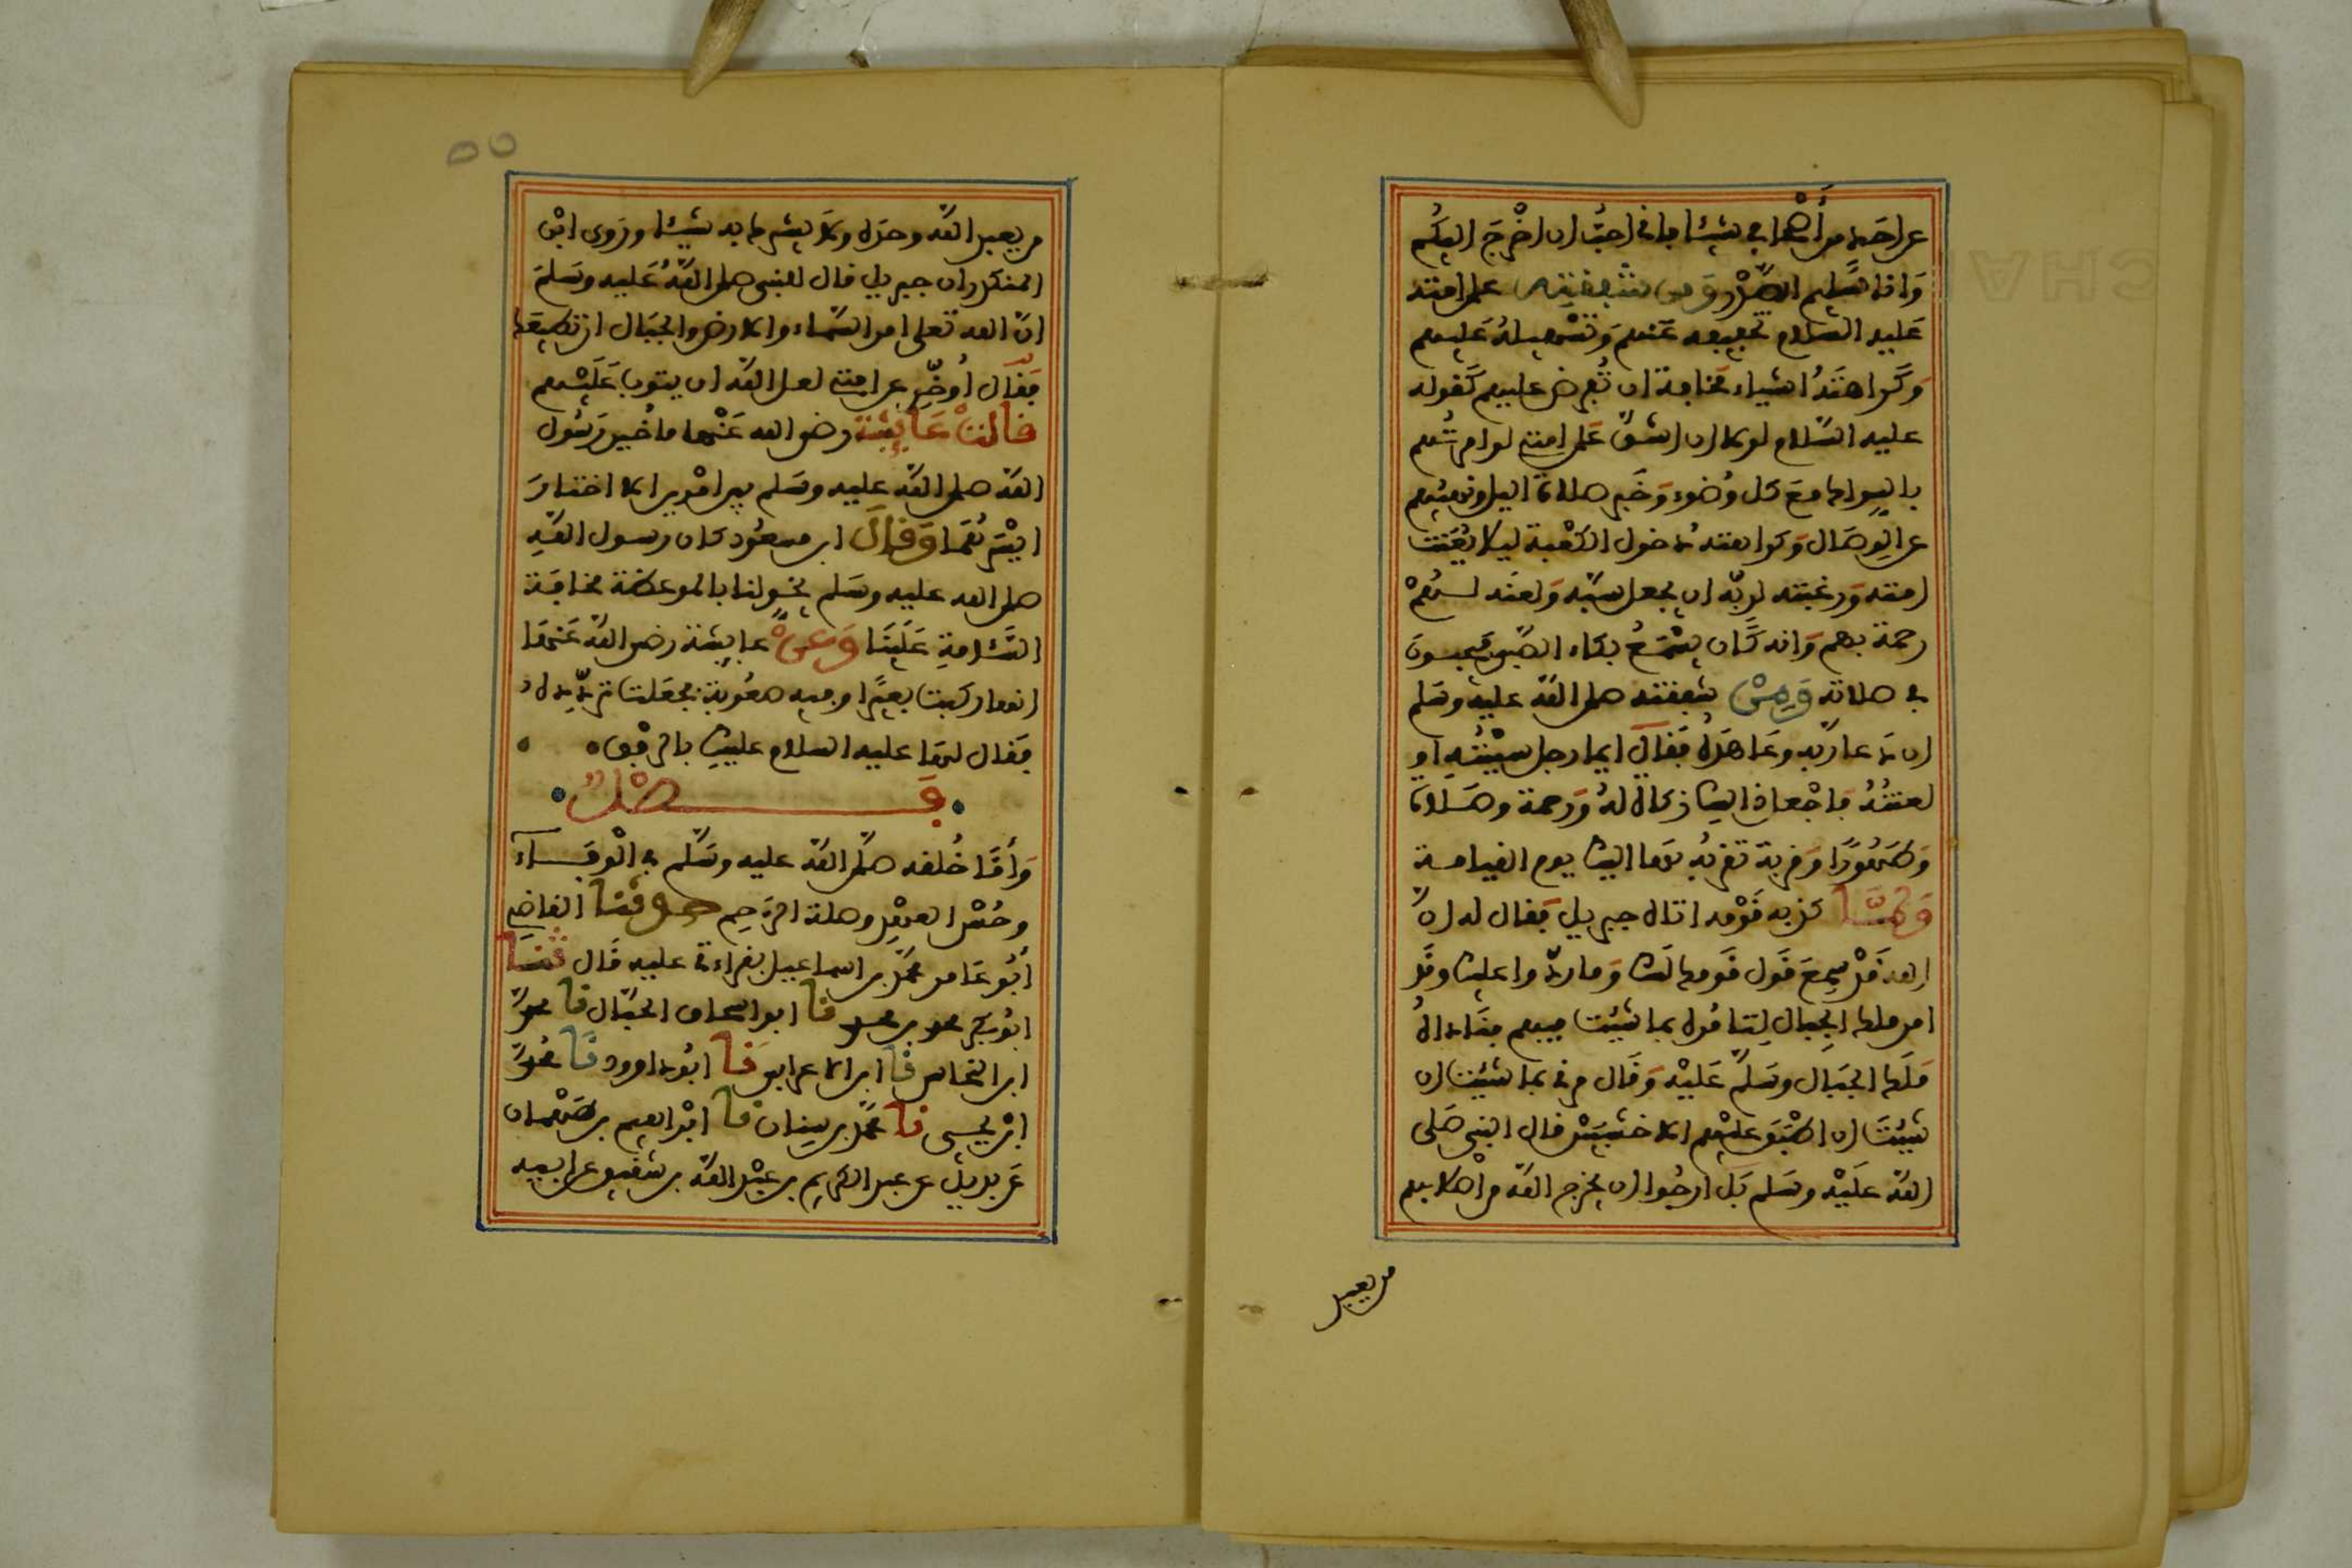 عن احد من أصحابي شيئا فإني احب ان اخرج اليكم
وَانا سليم الصدر ومن شفقته على امته
عليه السلام تخفيفه عنهم وتسهيله عليهم
وكراهته اشياء مخافة ان تُفرض عليهم كقوله
عليه السلام لولا ان اشق على امتي لوامرتهم
بالسواك مع كل وُضوء وَخبر صلاة اليل ونهيهم
عن الوِصَال وكراهته دخول الكعبة ليلا يُعَنِّت
امته ورغبته لربّه ان يجعل سبّه ولعنه لهم
رحمة بهم وَانه كَان يسْمَعُ بكاء الصّبي فيتجوز
في صلاته وَمِنْ شفقته صلى الله عليه وسلم
ان دعا ربّه وعَاهَدَهُ فَقَال ايما رجل سببْتُهِ او
لعنتُهُ فاجْعل ذاليك زكاة لهُ وَرحمة وصَلاة
وطَهُورًا وَقربة تقربُه بها اليك يوم القيامة
وَلمّا كذبه قَوْمه اتاه جبريل فقال له انّ
الله قَدْ سمِعَ قَول قَومك لَك وَما ردّوا عليك وقَد
امر ملك الجِبال لِتامُره بما شيئت فيهم فنَاداهُ
مَلَك الجبَال وسَلّم عَليْه وَقَال مرني بما شيئت ان
شيئتَ ان اطْبَق عليْهم الاخشبَيْن قال النبي صَلى
اللّه علَيْه وسَلم بَل ارجُوا ان يخرج اللّه من اصْلابهم
من يعبد
٥٥
من يعبد اللّه وحدَه ولا يشرك به شيئا وروى ابْن
المنكدر ان جبريل قال للنبي صلى اللّهُ عَليه وسَلمَ
انّ الله تعلى امر السّماء والارض والجبَال ان تطيعَك
فَقَال أُوخّر عن امتي لعل اللّه ان يتوب عَلَيْهم
قالتْ عَايشة رضي الله عَنْها ما خُير رَسُول
اللّه صلى اللّه عليه وسَلم بين امْرين الا اختارَ
ايْسَرَهُمَا وَقال ابن مسعُود كان رسول اللّهِ
صلى الله عليه وسَلم يتخولنا بالموعظة مخافَة
السّئامةِ عَلينَا وَعَنْ عايشة رضي اللّه عَنهَا
انها ركبت بعيرًا وفيه صعُوبة فجعَلت تردّده
فَقال لهَا عليه السلام عليكِ بالرفق
فَصْلٌ
وَأمّا خُلقه صلّى اللّه عليه وسَلّم في الْوفَاءِ
وحُسْن العهْدِ وصلة الرّحِم حدثنا القاضي
أبُو عَامر محمّد بن اسماعيل بقراءتي عليه قَال ثنا
ابُو بكر محمد بن محمد نا ابو اسحاق الحبّال نا محمدّ
ابن النحاس نا ابن الاعرابي نا ابُو داوود نا محُمدّ
ابْن يحيى نا محمّد بن سينان نا ابْراهيم بن طَهْمان
عَن بديل عن عبد الكريم بن عبْد اللّه بن شَقيق عن ابيه